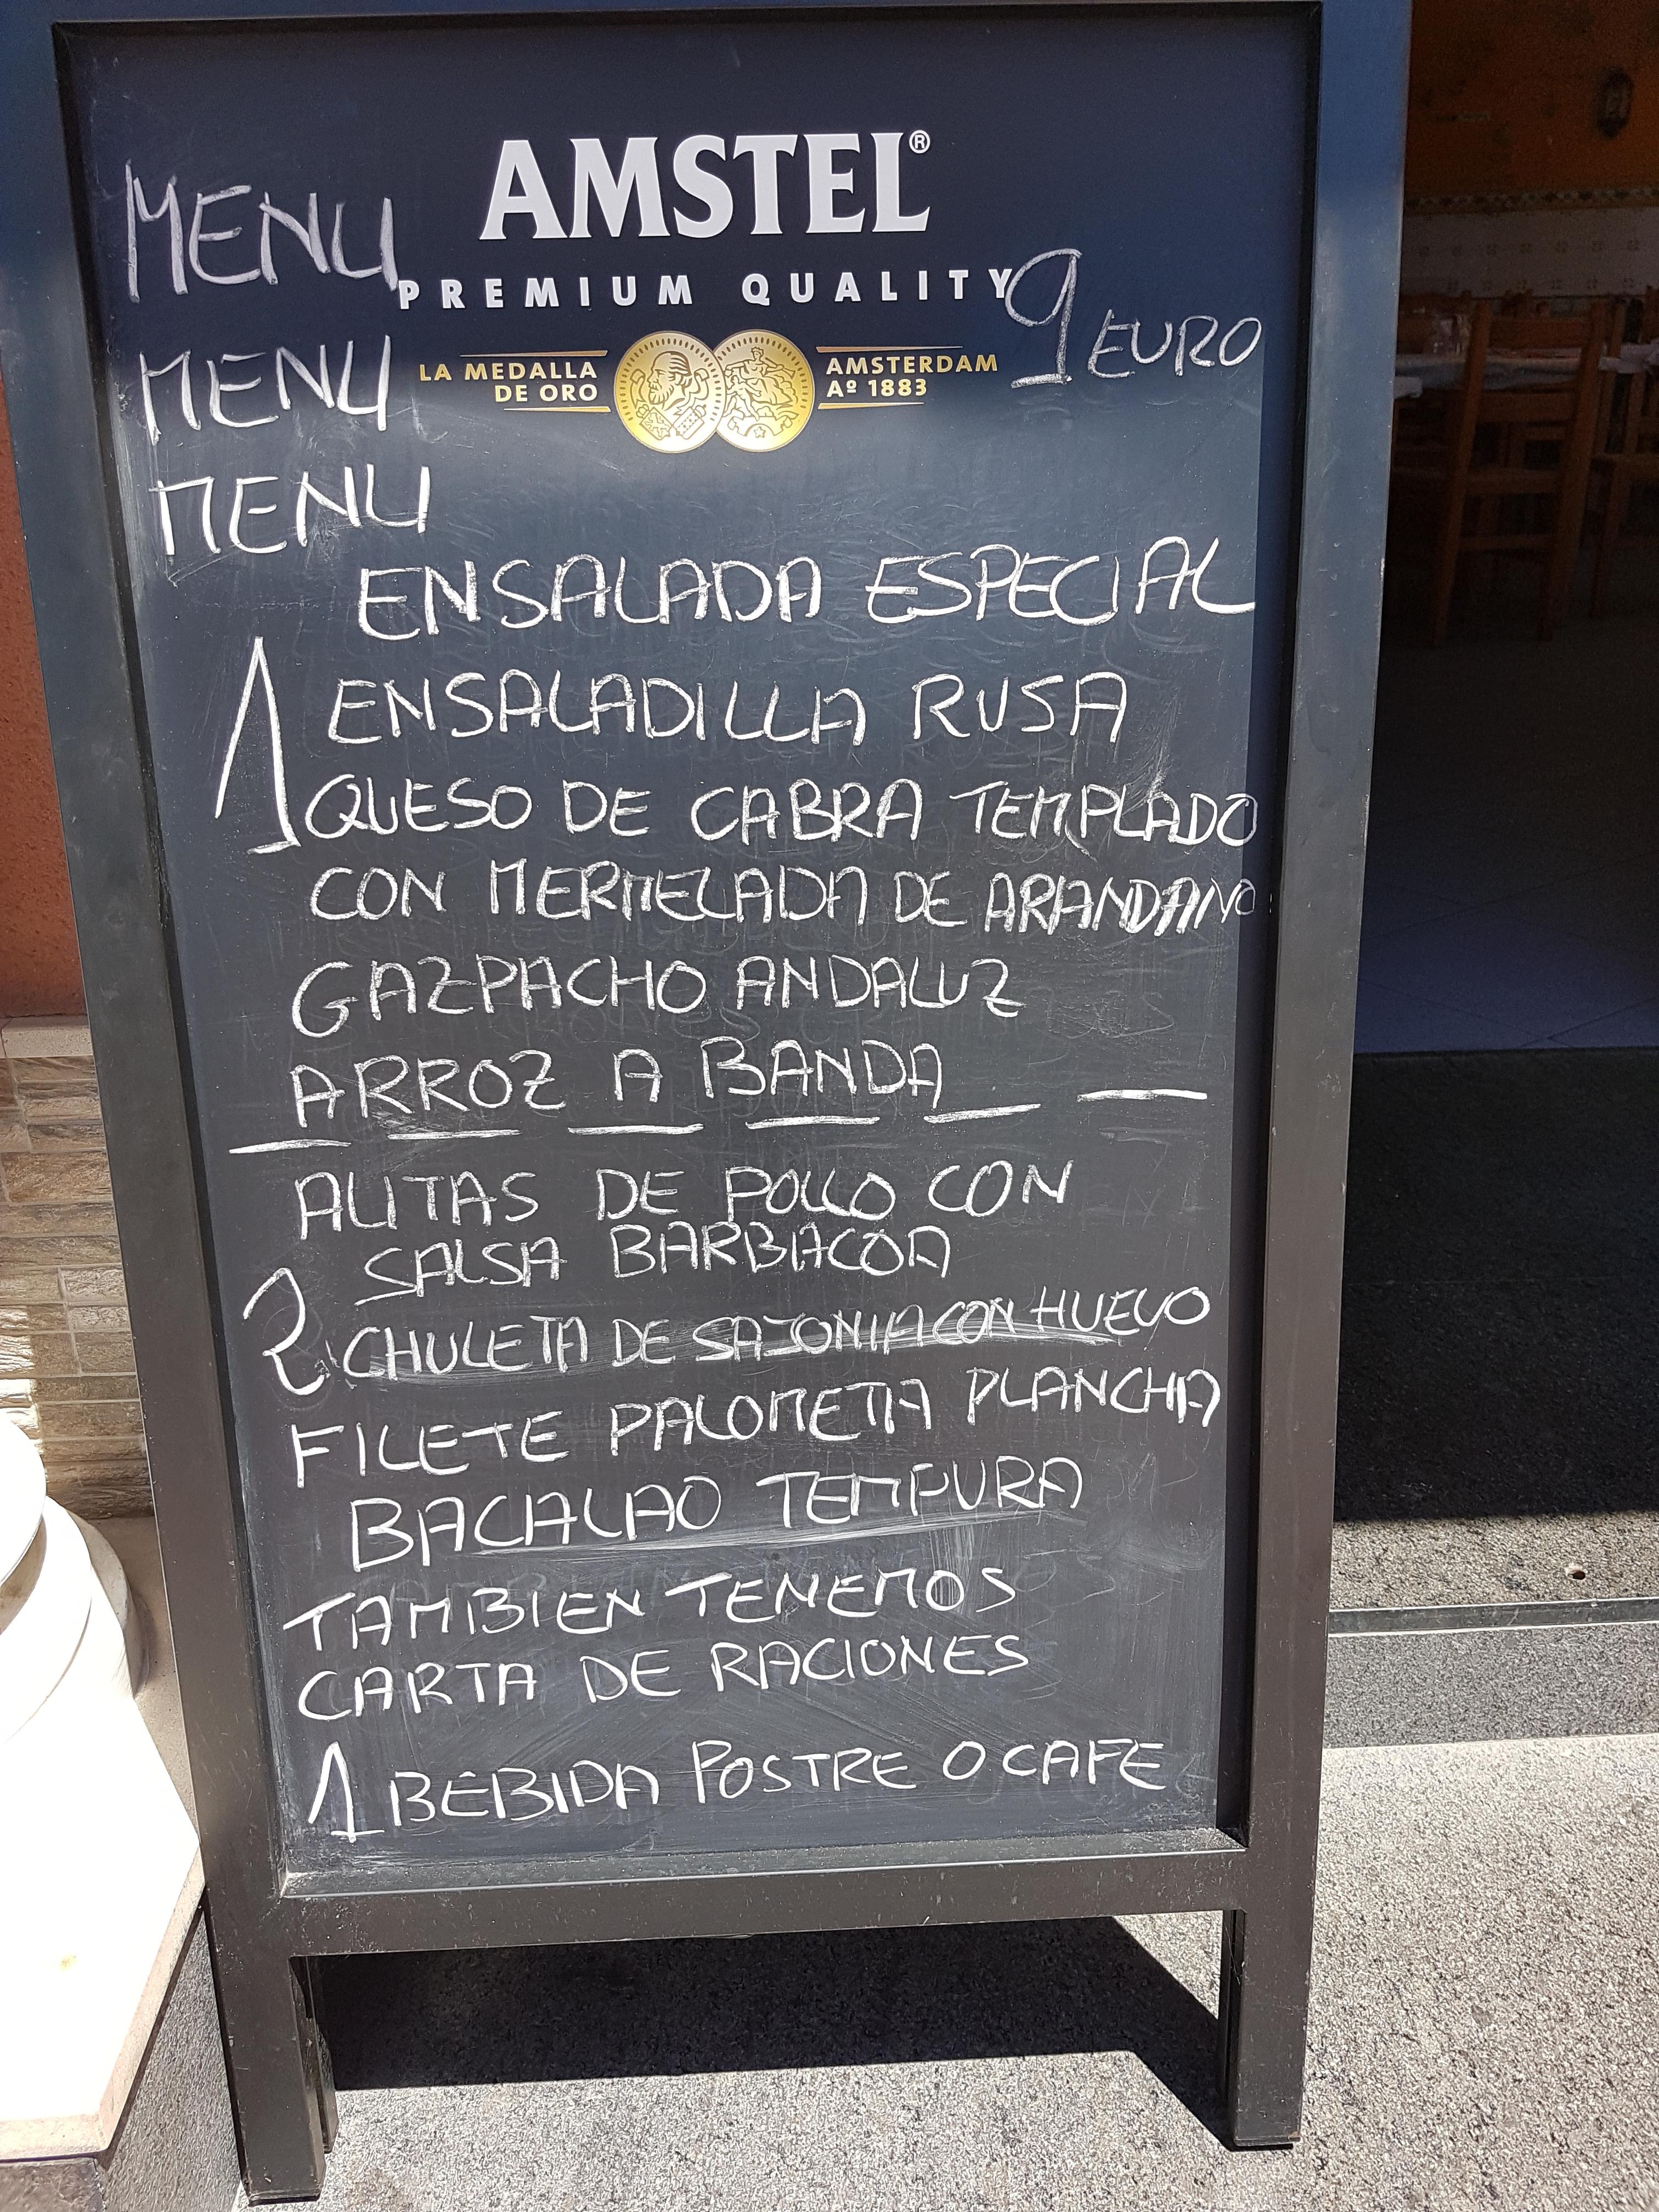 AMSTEL®
MENU
PREMIUM QUALITY
9 EURO
MENU
LA MEDALLA
DE ORO
AMSTERDAM
Aº 1883
MENU
ENSALADA ESPECIAL
1 ENSALADILLA RUSA
QUESO DE CABRA TEMPLADO
CON MERMELADA DE ARANDANO
GAZPACHO ANDALUZ
ARROZ A BANDA
ALITAS DE POLLO CON
SALSA BARBACOA
2 CHULETA DE SAJONIA CON HUEVO
FILETE PALOMETA PLANCHA
BACALAO TEMPURA
TAMBIEN TENEMOS
CARTA DE RACIONES
1 BEBIDA POSTRE O CAFE